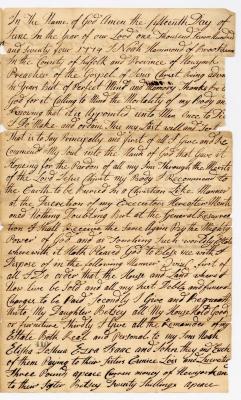 In the Name of God Amen the fifteenth Day of
June In the Year of our Lord one Thousand Seven hundred
and Seventy four 1774 I Noah Hammond of Brookhaven
In the County of Suffolk and Province of Newyork
Preacher of the Gospel of Jesus Christ being advanced
in Years but of Perfect Mind and memory thanks be to
God for it Calling to Mind the Mortality of my Body and
Knowing that it is Appointed unto Men once to Die
Do Make and ordain this my Last will and
That is to Say Principally and first of all I give and Re
Commend My Soul into the Hand of God that Gave it
Hoping for the Pardon of all my Sins Through the Merits
of the Lord Jesus Christ My Body I Recommend to
the Earth to be Buried In a Christian Like Manner
at the Direction of my Executors Hereafter Menti
oned Nothing Doubting but at the General Resurrec
tion I Shall Receive the Same Again By the Mighty
Power of God and as Touching Such worldly Estate
wherewith it Hath Pleased God to Bless me with I
Dispose of in the following Manner first
all I Do order that the House and Land where I
Now Live be Sold and all my Just Debts and funeral
Charges to be Paid Secondly I Give and Bequeath
unto My Daughter Betsey all My Household Goods
or furniture Thirdly I Give all the Remainder of my
Estate Both Real and Personal to my Sons Noah
Elisha Joshua Ezra Isaac and John they Each
of them Paying to their Sisters
Three Pounds apeace Curran money of Newyork and
to their Sister Betsey Twenty Shillings apeace